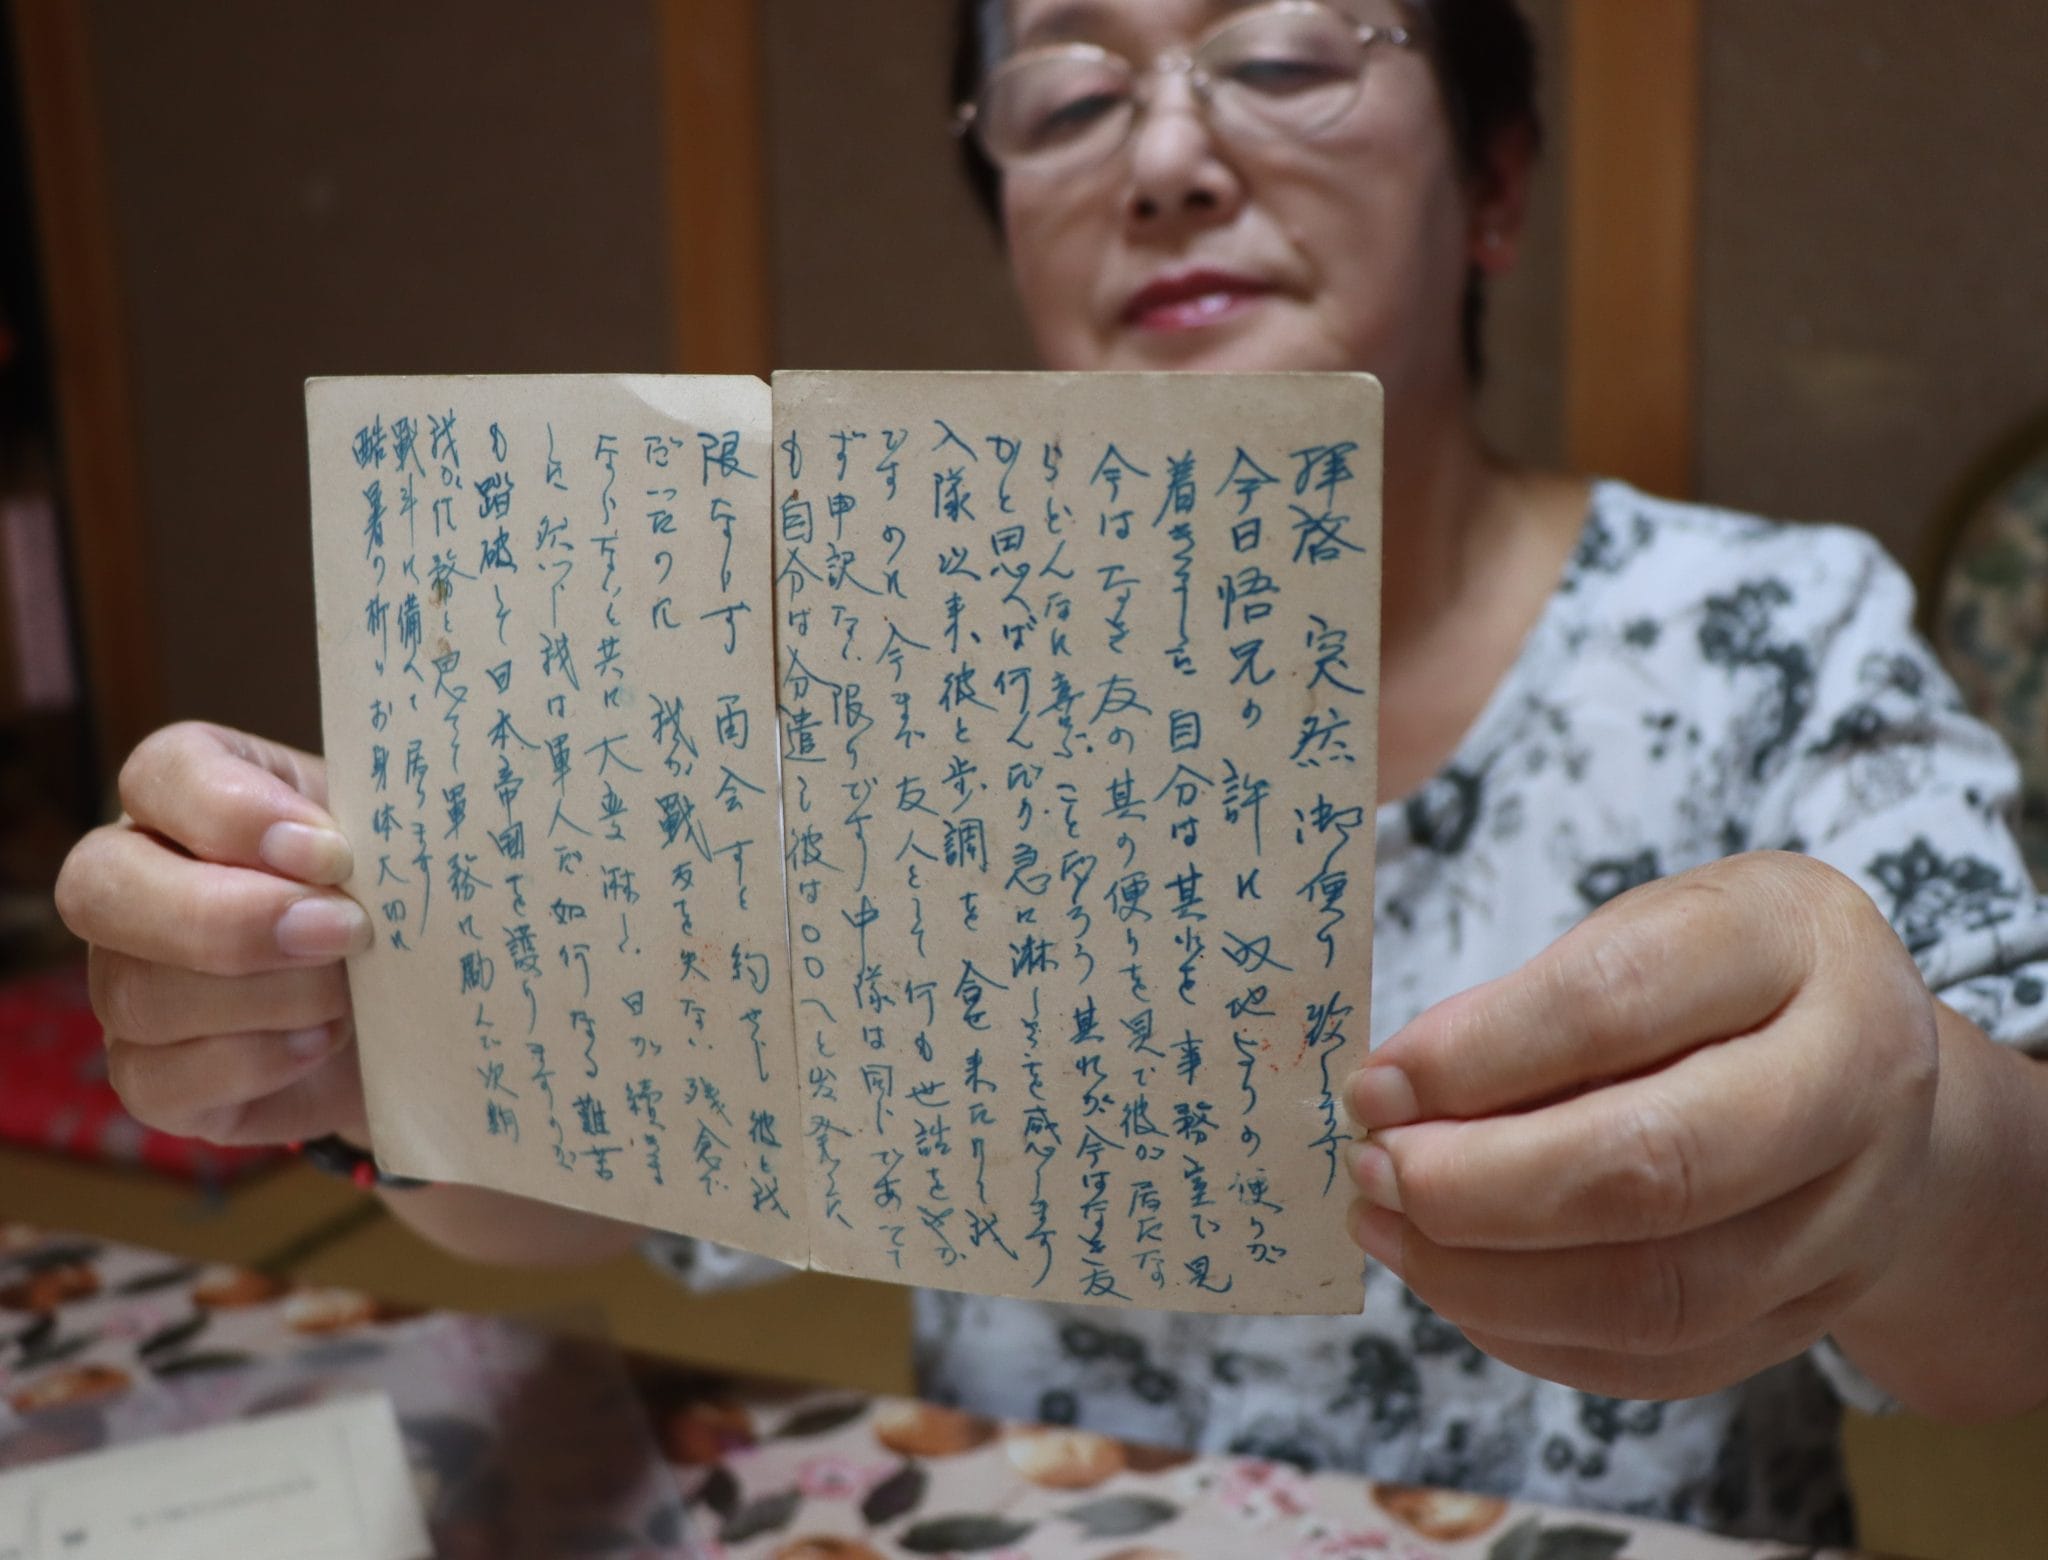 拝啓 突然御便り致します
今日悟兄の許に政地よりの便りが
着きました 自分は其れを事務室で見
今はなき友の其の便りを見て彼が居たな
らどんなに喜ぶことだろう 其れが今はなき友
かと思へば何んだか急に淋しさを感じます
入隊以来、彼と歩調を合せ来たりし我
ですのに 今まで友人として何も世話をせ
ず申訳なく限りです 中隊は同じであって
も自分は分遣し彼は○○へと出発した
限ならず 面会すと約せし 彼と我
だったのに 我が戦友を失ない残念で
ならないと共に大変淋しい日が続きま
した 然し 我は軍人だ如何なる難苦
も踏破して日本帝国を護りますのが
我が任務と思って軍務に励んで次期
戦斗に備へて居ります
酷暑の折りお身体大切に